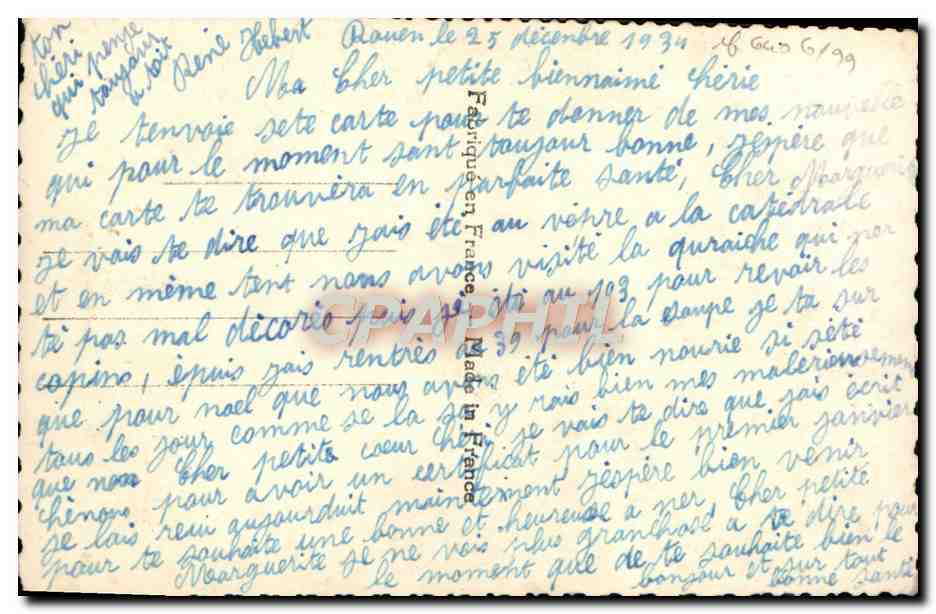 Rouen le 25 décembre 1934
Ma Cher petite biennaimé chérie
je tenvoie sete carte pour te donner de mes
qui pour le moment sont toujour bonne, jespère que
ma carte te trouviera en parfaite santé, Cher
je vais te dire que jais été au vèpre a la catédrale
et en mème tent nous avons visité la qui
té pas mal décorée puis jé été au 103 pour revoir les
copins, épuis jais rentrés a 39 pour la soupe je ta sur
que pour noel que nous avons été bien nourie si sété
tous les jour comme se la sa y rais bien mes malereusement
que non Cher petite coeur chéri je vais te dire que jais écrit
chénous pour avoir un certificat pour le premier janvier
je lais reçu aujourduit maintement jéspère bien venir
pour te souhaité une bonne et heureuse a ner, Cher petité
Marguerite je ne vois plus granchose a te dire pour
le moment que de te souhaité bien le
bonjour et sur tout
bonne santé
ton
chéri
qui pense
toujour
a toit
René Hebert
Fabriqué en France Made in France
CPAPHIL